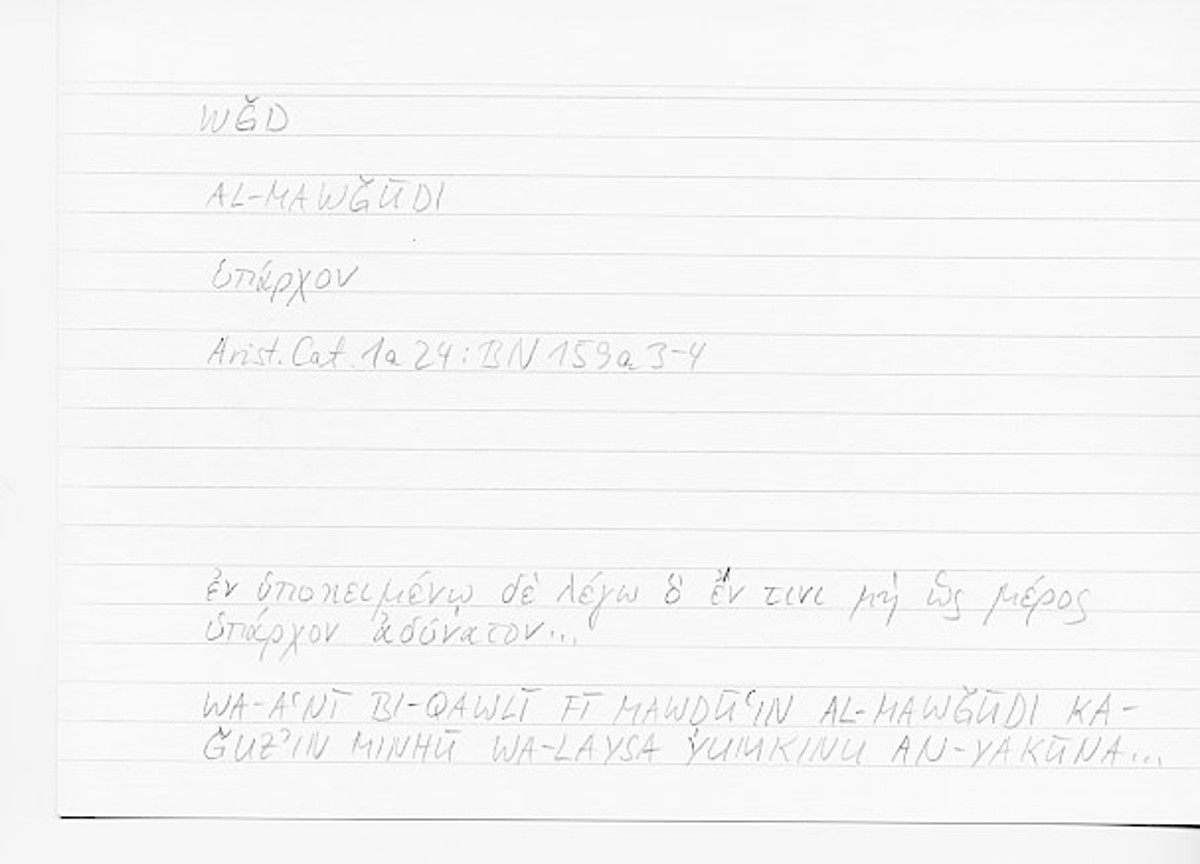 WǦD
AL-MAWǦŪDI
ὑπάρχον
Arist. Cat. 1a 24 : BN 159a 3-4
ἐν ὑποκειμένῳ δὲ λέγω ὃ ἔν τινι μὴ ὡς μέρος
ὑπάρχον ἀδύνατον...
WA-AʿNĪ BI-QAWLĪ FĪ MAWḌŪʿIN AL-MAWǦŪDI KA-
ǦUZʾIN MINHŪ WA-LAYSA YUMKINU AN-YAKŪNA...